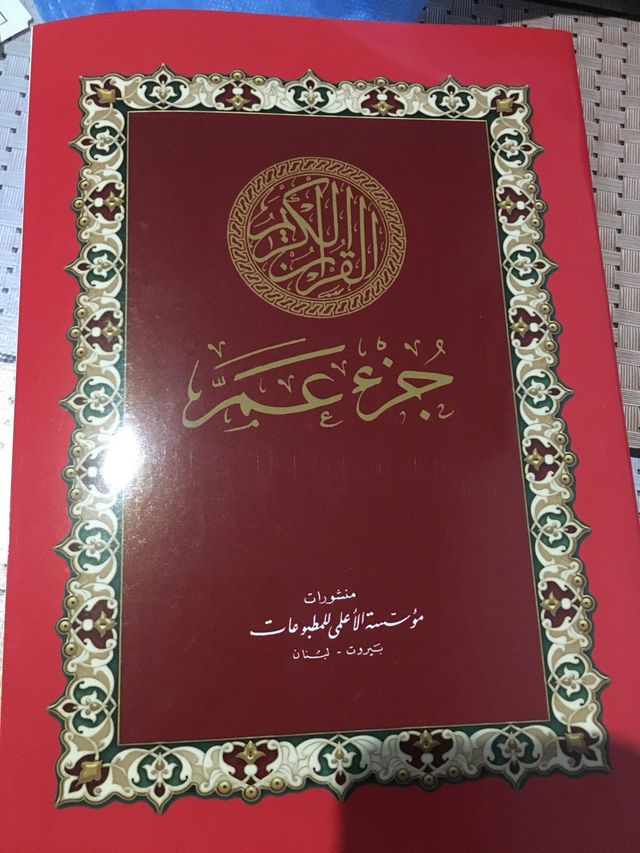 القرآن الكريم
جُزْء عَمَّ
منشورات
مؤسّسة الأعلمي للمطبوعات
بَيروت - لبُنان